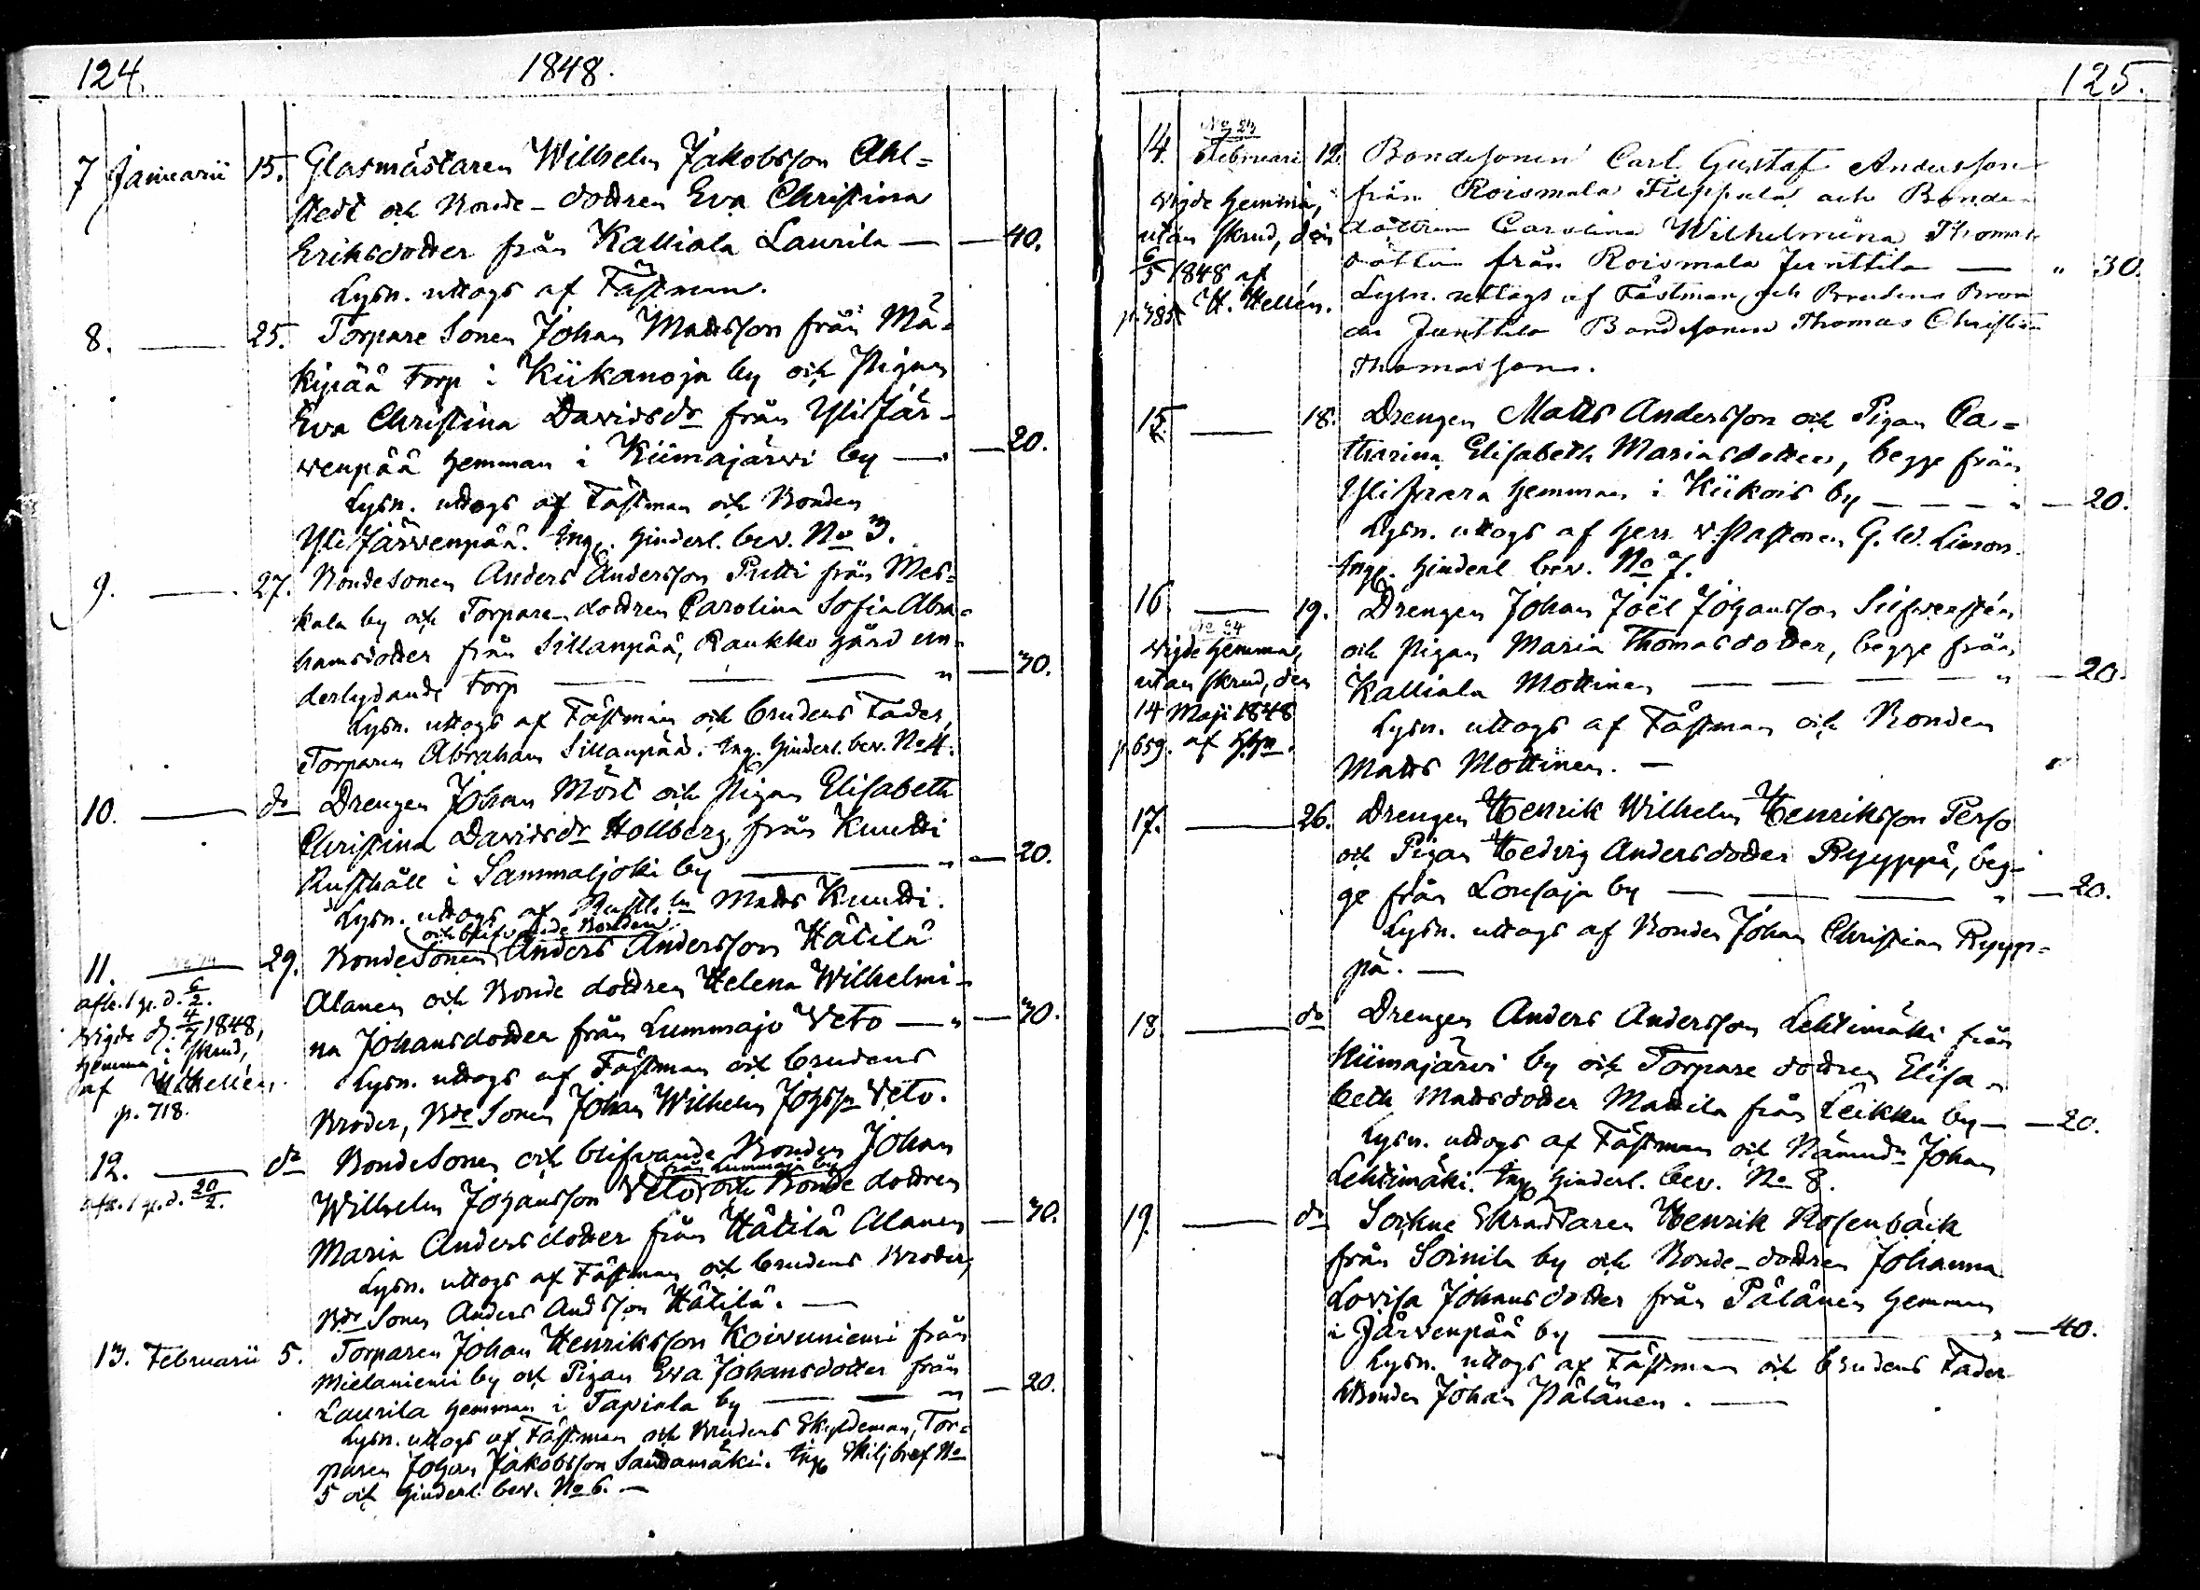 124.
1848.
7 Januarii 15. Glasmästaren Wilhelm Jakobsson Ahl=
stedt och Bonde-dottren Eva Christina
Eriksdotter från Kalliala Laurila — — 40.
Lysn. uttogs af Fästman.
8. — 25. Torpare Sonen Johan Mattsson från Mä=
kipää Torp i Kiikanoja by och Pigan
Eva Christina Davidsdr från Yli Jär-
wenpää hemman i Kiimajärwi by — — 20.
Lysn. uttogs af Fästman och Bonden
Yli Järvenpää. Ing. hinderl. bev. No 3.
9. — 27. Bondesonen Anders Andersson Putti från Mes=
kala by och Torpare-dottren Carolina Sofia Abra=
hamsdotter från Sillanpää, Raukko gård un-
derlydande Torp — — — " — 30.
Lysn. uttogs af Fästman och brudens Fader,
Torparen Abraham Sillanpää. Ing. hinderl. bev. No 4.
10. — do Drengen Johan Mört och Pigan Elisabeth
Christina Davidsdr Hollberg, från Knutti
Rusthåll i Sammaljoki by — — " — 20.
Lysn. uttogs af Rusth. Matts Knutti.
och blifvande Bonden
11. — 29. BondeSonen Anders Andersson Hätilä
Alanen och Bonde dottren Helena Wilhelmi-
na Johansdotter från Lummaja Veto — " — 30.
Lysn. uttogs af Fästman och brudens
Broder, Bde Sonen Johan Wilhelm Johsson Veto.
afk. 1 g. d. 6/2.
Wigde d. 4/7 1848,
hemma i skrud,
af H. Hellén.
p. 718.
12. — do BondeSonen och blifvande Bonden Johan
från Lummaja by
Wilhelm Johansson Veto och Bonde dottren
Maria Andersdotter från Hätilä Alanen — 30.
Lysn. uttogs af Fästman och brudens Broder,
Bde Sonen Anders Andsson Hätilä. —
afk. 1 g. d. 20/2.
13. Februarii 5. Torparen Johan Henriksson Koivuniemi från
Mielaniemi by och Pigan Eva Johansdotter från
Laurila hemman i Tapiala by — — " — 20.
Lysn. uttogs af Fästman och Brudens Skyldeman, Tor=
paren Johan Jakobsson Santamäki. Ing. Skiljbref No
5 och hinderl. bev. No 6. —
125.
No 23
14. Februari 12. Bondesonen Carl Gustaf Andersson
från Roismala Filppula och Bonde-
dottren Carolina Wilhelmina Thomas
dotter från Roismala Junttila — " 30.
Lysn. uttogs af Fästman och Brudens Bror
Junttila Bondesonen Thomas Christian
Thomasson.
Wigde hemma,
utan skrud, den
6/5 1848 af
p. 385 H. Hellén.
15. — 18. Drengen Matts Andersson och Pigan Ca=
tharina Elisabeth Mariasdotter, begge från
hemman i Kiikois by — — — — 20.
Lysn. uttogs af Herr v. Pastoren G. W. Limon.
Ingg. hinderl bev. No 7.
16. — 19. Drengen Johan Joël Johansson Silfverstén
och Pigan Maria Thomasdotter, begge från
Kalliala Mottinen — — — — " — 20.
Lysn. uttogs af Fästman och Bonden
Matts Mottinen. —
No 24
Wigde hemma,
utan skrud, den
14 Maji 1848
p. 659. af
17. — 26. Drengen Henrik Wilhelm Henriksson Perso
och Pigan Hedvig Andersdotter Ryyppä, beg-
ge från Lousaja by — — — " — 20.
Lysn. uttogs af Bonden Johan Christian Ryyp=
pä. —
18. — do Drengen Anders Andersson Lehtimäki från
Kiimajärvi by och Torpare dottren Elisa-
beth Mattsdotter Mattila från Leikku by — — 20.
Lysn. uttogs af Fästman och Nämndn Johan
Lehtimäki. Ing. hinderl. bev. No 8.
19. — do Sockne Skräddaren Henrik Rosenbäck
från Soinila by och Bonde-dottren Johanna
Lovisa Johansdotter från Pälänen hemman
i Järvenpää by — — — " — 40.
Lysn. uttogs af Fästman och brudens Fader
Bonden Johan Pälänen. —